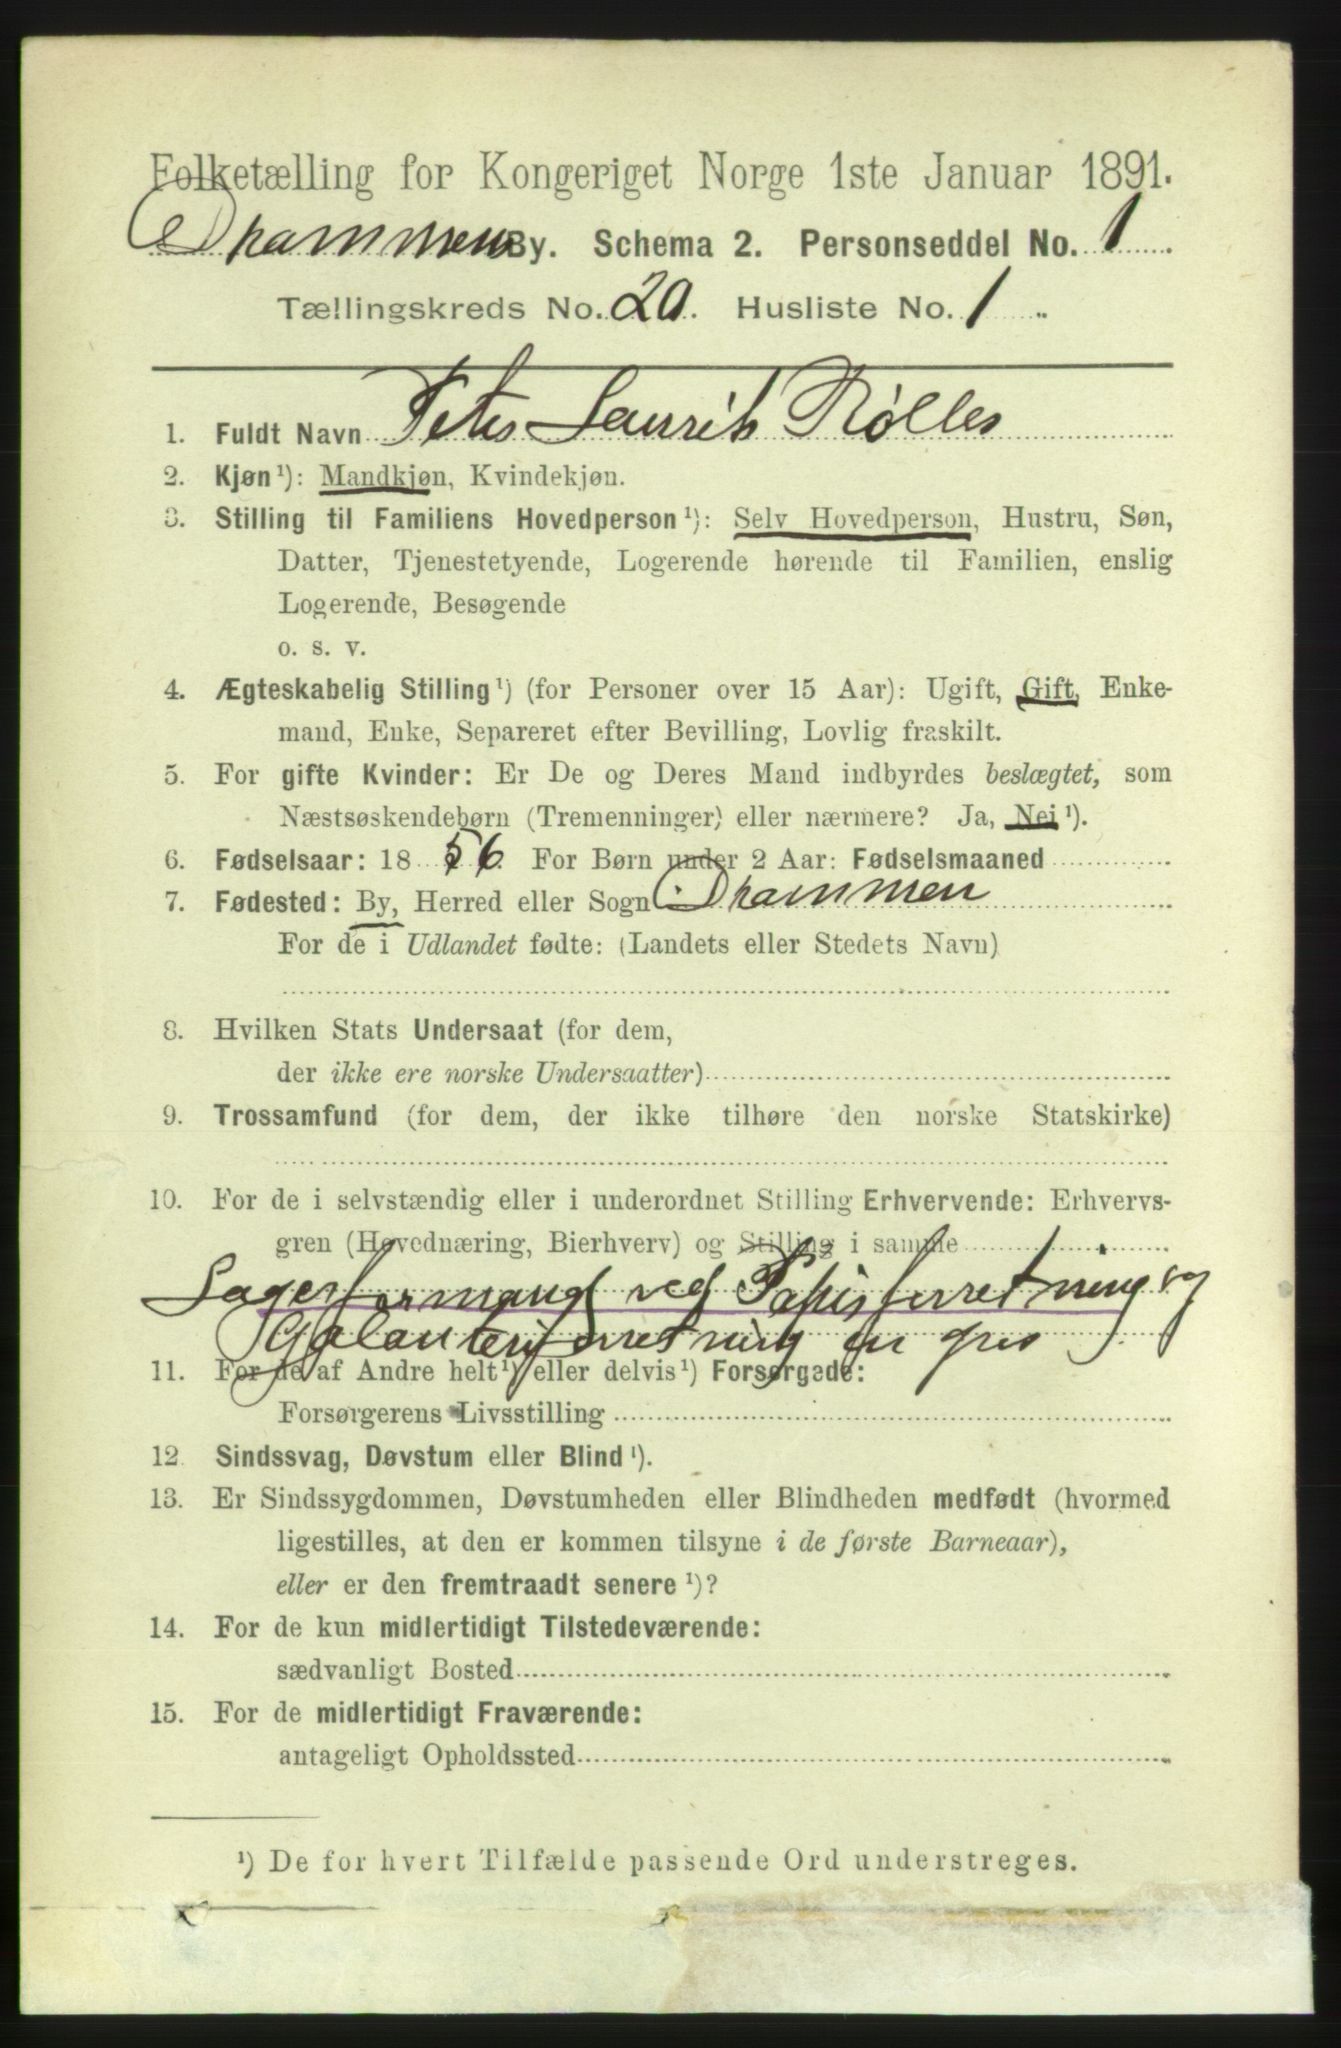 Folketælling for Kongeriget Norge 1ste Januar 1891.
Drammen By. Schema 2. Personseddel No. 1
Tællingskreds No. 20. Husliste No. 1
1. Fuldt Navn Peter Laurits Møller
2. Kjøn ¹): Mandkjøn, Kvindekjøn.
3. Stilling til Familiens Hovedperson ¹): Selv Hovedperson, Hustru, Søn,
Datter, Tjenestetyende, Logerende hørende til Familien, enslig
Logerende, Besøgende
o. s. v.
4. Ægteskabelig Stilling ¹) (for Personer over 15 Aar): Ugift, Gift, Enke-
mand, Enke, Separeret efter Bevilling, Lovlig fraskilt.
5. For gifte Kvinder: Er De og Deres Mand indbyrdes beslægtet, som
Næstsøskendebørn (Tremenninger) eller nærmere? Ja, Nei ¹).
6. Fødselsaar: 1856 For Børn under 2 Aar: Fødselsmaaned
7. Fødested: By, Herred eller Sogn Drammen
For de i Udlandet fødte: (Landets eller Stedets Navn)
8. Hvilken Stats Undersaat (for dem,
der ikke ere norske Undersaatter)
9. Trossamfund (for dem, der ikke tilhøre den norske Statskirke)
10. For de i selvstændig eller i underordnet Stilling Erhvervende: Erhvervs-
gren (Hovednæring, Bierhverv) og Stilling i samme
Lagerformand ved Papirforretning og
Galanteriforretning en gros
11. For de af Andre helt ¹) eller delvis ¹) Forsørgede:
Forsørgerens Livsstilling
12. Sindssvag, Døvstum eller Blind ¹).
13. Er Sindssygdommen, Døvstumheden eller Blindheden medfødt (hvormed
ligestilles, at den er kommen tilsyne i de første Barneaar),
eller er den fremtraadt senere ¹)?
14. For de kun midlertidigt Tilstedeværende:
sædvanligt Bosted
15. For de midlertidigt Fraværende:
antageligt Opholdssted
¹) De for hvert Tilfælde passende Ord understreges.